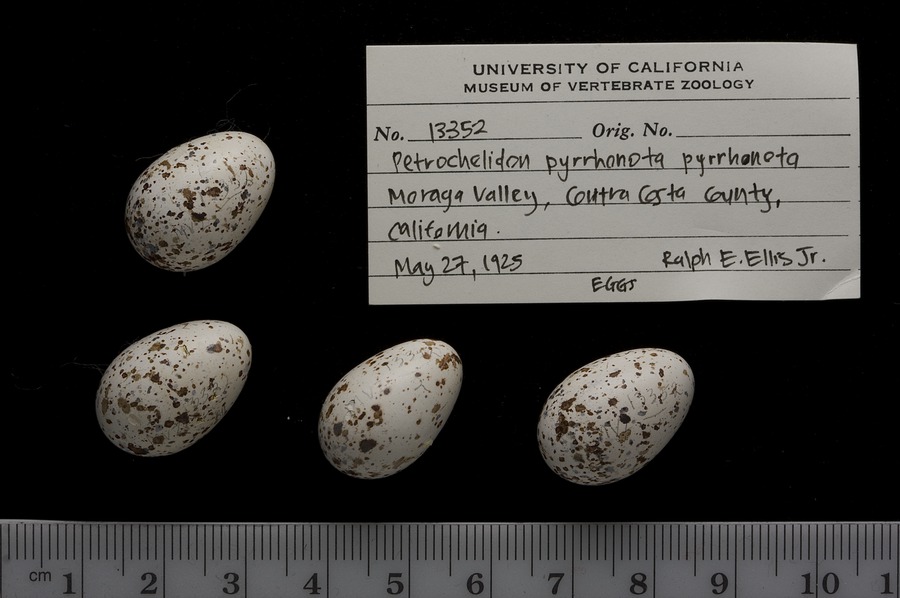 UNIVERSITY OF CALIFORNIA
MUSEUM OF VERTEBRATE ZOOLOGY
No. 13352 Orig. No.
Petrochelidon pyrrhonota pyrrhonota
Moraga Valley, Contra Costa County,
California.
May 27, 1925 Ralph E. Ellis Jr.
EGGS
cm 1 2 3 4 5 6 7 8 9 10 1